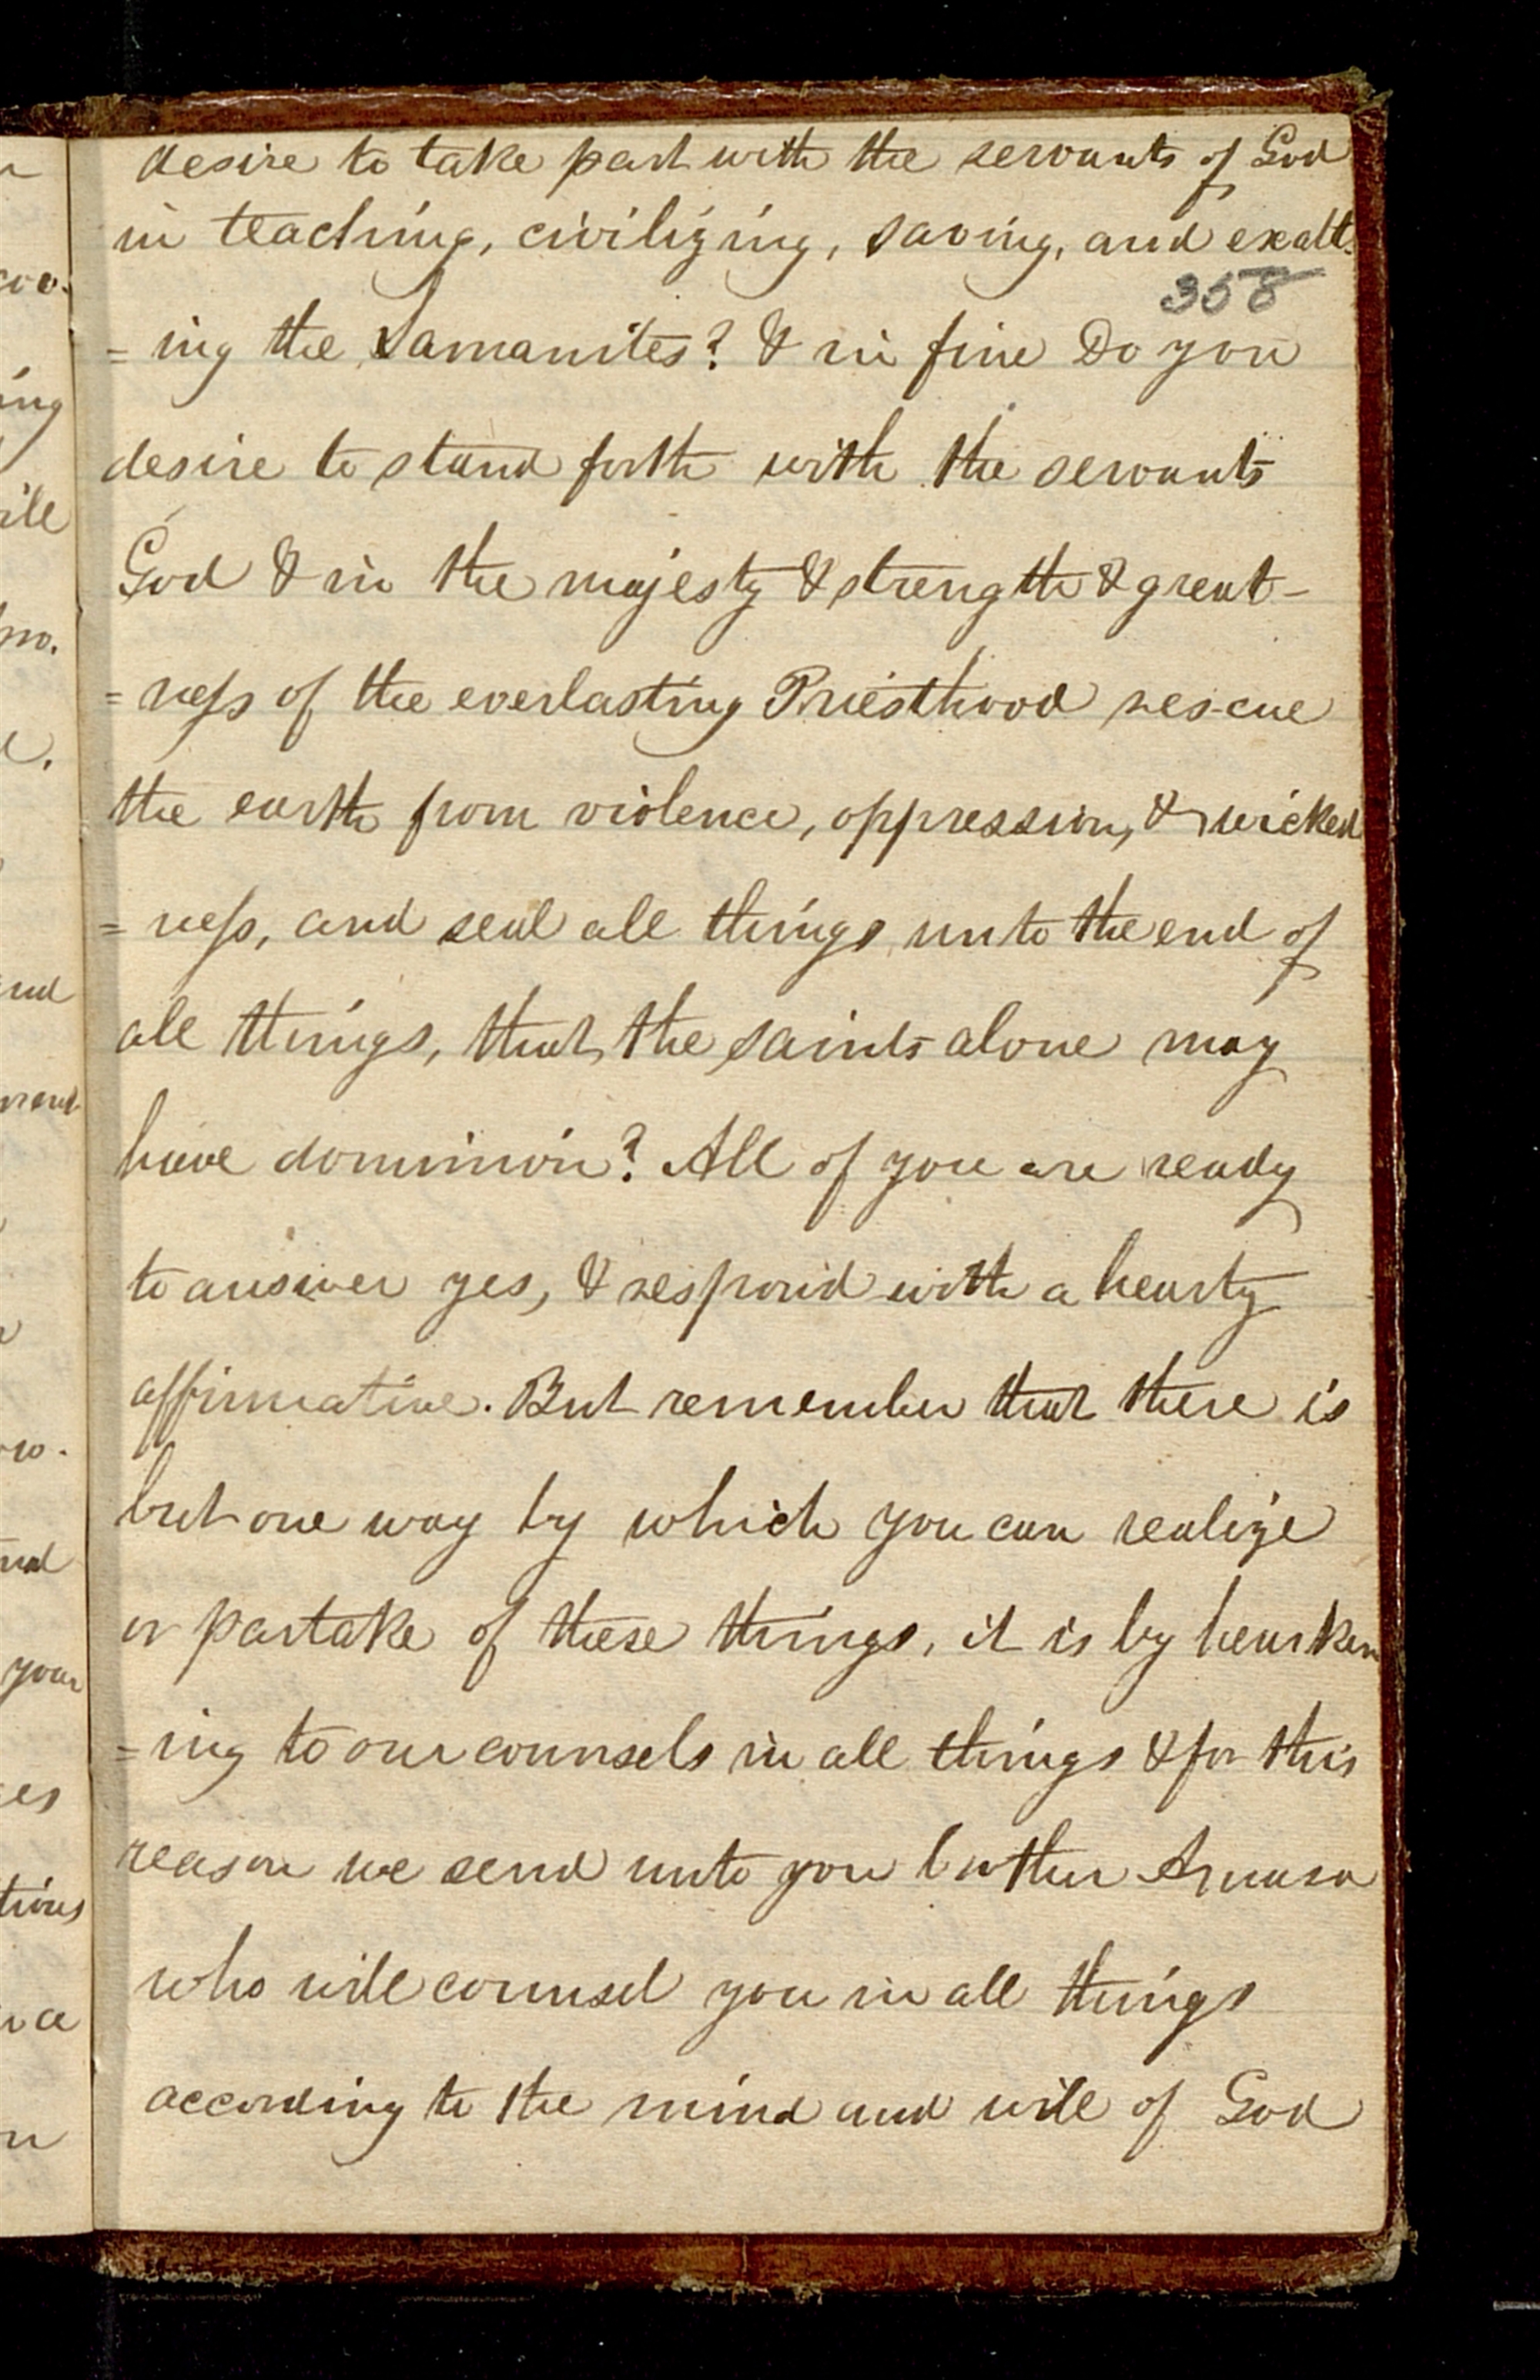 desire to take part with the servants of God
in teaching, civilizing, saving, and exalt-
358
= ing the Lamanites? & in fine Do you
desire to stand forth with the servants
God & in the majesty & strength & great-
= ness of the everlasting Priesthood rescue
the earth from violence, oppression, & wicked
= ness, and seal all things unto the end of
all things, that the saints alone may
have dominion? All of you are ready
to answer yes, & respond with a hearty
affirmative. But remember that there is
but one way by which you can realize
or partake of these things, it is by hearken
= ing to our counsels in all things & for this
reason we send unto you brother Amasa
who will counsel you in all things
according to the mind and will of God